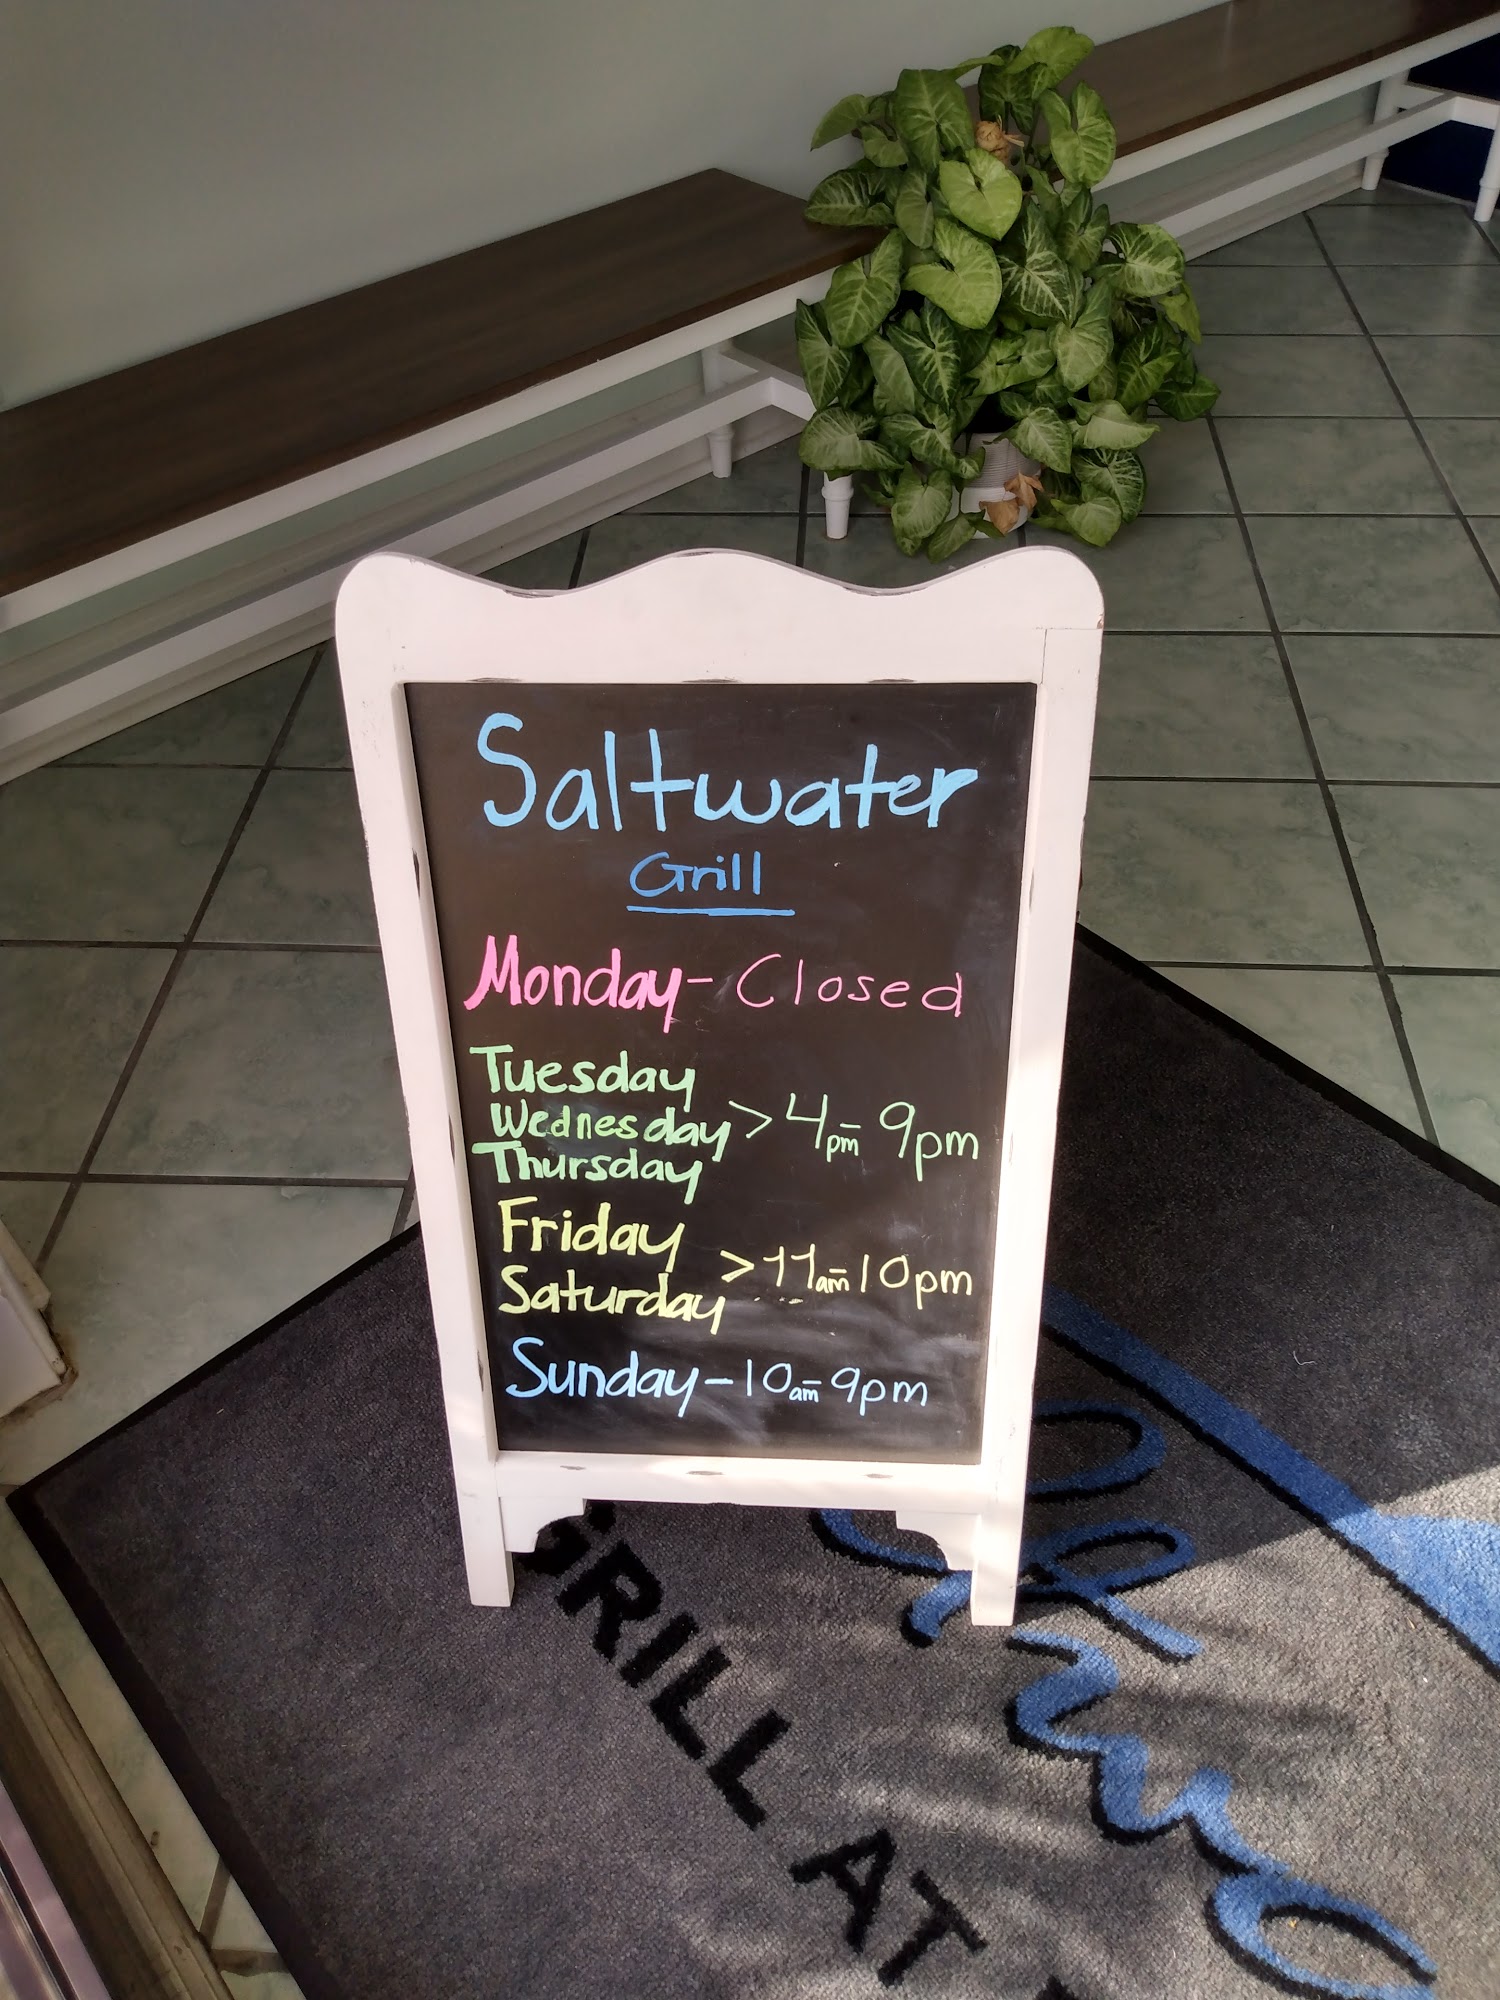 Saltwater
Grill
Monday - Closed
Tuesday
Wednesday > 4pm - 9pm
Thursday
Friday
Saturday > 11am - 10pm
Sunday - 10am - 9pm
GRILL AT